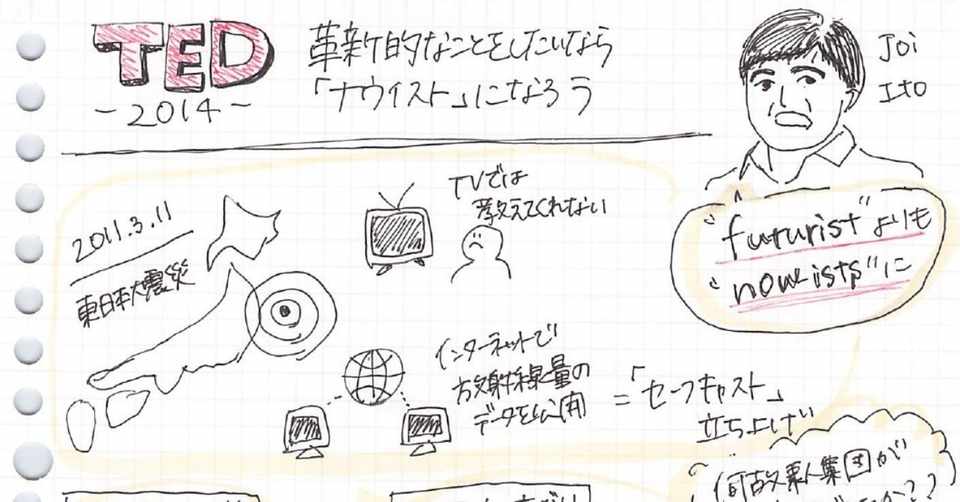 TED
~2014~
革新的なことをしたいなら
「ナウイスト」になろう
Joi
Ito
"futurist"よりも
"now-ists"に
2011.3.11
東日本大震災
TVでは
教えてくれない
インターネットで
放射線量の
データを公開
=「セーフキャスト」
立ち上げ
何故素人集団が